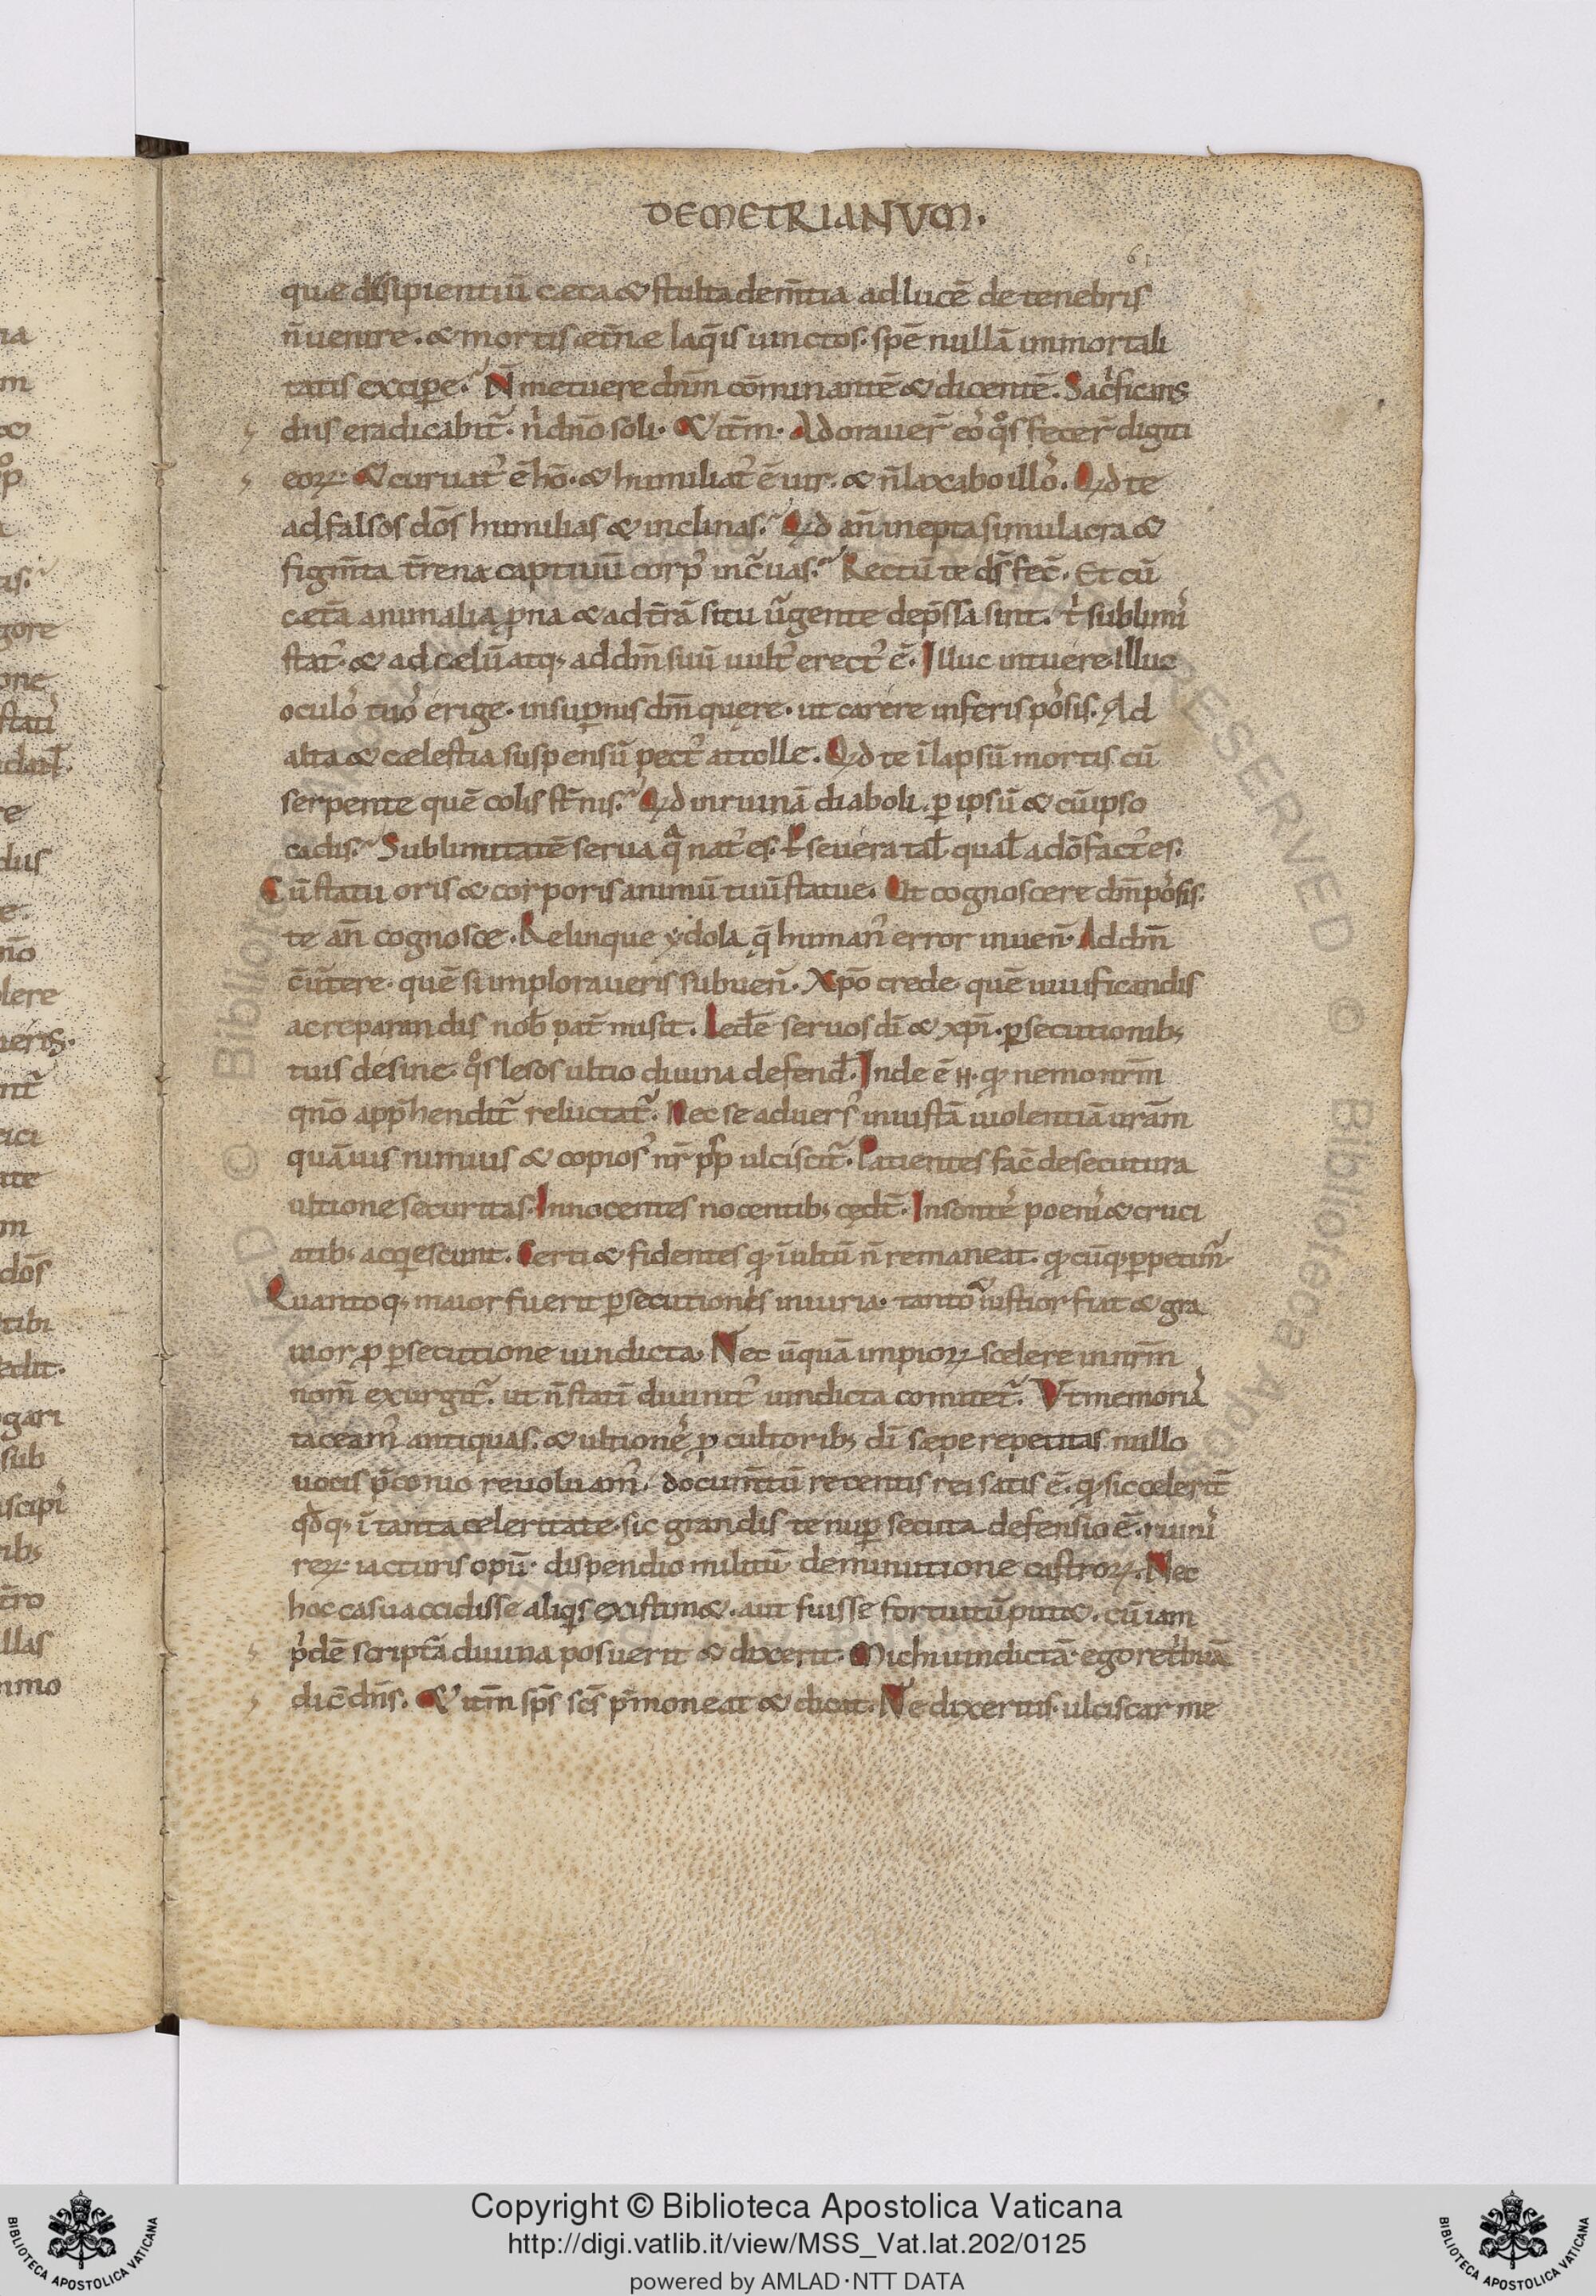 DEMETRIANVM.
61
quæ disipientiū cæca & stulta dem̄tia ad lucē de tenebris
n̄ uenire. & mortis æt̄næ laq̄is uinctos. spē nullā inmortali
tatis excipe. N̄ metuere dn̄m cōminantē & dicentē. Sac̓ficans
diis eradicabit᷑. n̓ dn̄o soli. & it̄m. Adorauer̄ eo᷒ qo̓s fecer̄ digiti
eoꝝ. & curuat᷒ ē hō. & humiliat᷒ ē uir. & n̄ laxabo illo᷒. Qd te
ad falsos dōs humilias & inclinas. Qd an̄ inepta simulacra &
figm̄ta t̄rena captiuū corp᷒ inc̄uas. Rectū te ds̄ fec̄. Et cū
cæt̄a animalia ꝓna & ad t̄rā situ ūgente dep̄ssa sint. t̓ sublimi᷒
stat᷒. & ad cælū atq; ad dm̄ suū uult᷒ erect᷒ ē. Illuc intuere. Illuc
oculo᷒ tuo᷒ erige. in suꝑnis dm̄ quere. ut carere inferis po᷒sis. Ad
alta & cælestia suspensū pect᷒ attolle. Qd te ī lapsū mortis cū
serpente quē colis st̄nis. Qd in ruinā diaboli. ꝑ ipsū & cū ipso
cadis. Sublimitatē serua qͣ nat᷒ es. Ꝑseuera tal̄ qual̄ a dō fact᷒ es.
Cū statu oris & corporis animū tuū statue. Ut cognoscere dm̄ po᷒sis.
te an̄ cognosce. Relinque ydola q̄ human᷒ error inuen̄. Ad dm̄
c̄u̓tere. quē si imploraueris subuen̄. Xp̄o crede. quē uiuificandis
ac reparandis nob̄ pat̄ misit. Led̄e seruos dī & xp̄i. ꝑsecutionib;
tuis desine. qo̓s lesos ultio diuina defend̄. Inde ē .H. qͥ nemo nr̄m
qn̄o app̄hendit᷑ reluctat᷑. Nec se aduers᷒ iniustā uiolentiā ur̄am
quāuis nimius & copios᷒ nr̄ pp̄ ulciscit᷑. Patientes fac̄ de secutura
ultione securitas. Innocentes nocentib; cędt̄. Insonte᷒ poeni᷒ & cruci
atib; acqͥescunt. Certi & fidentes qͥ īultū n̄ remaneat. qͥcūq; ꝑpetim᷒.
Quantoq; maior fuerit ꝑsecutiones iniuria. tanto & iustior fiat & gra
uior ꝓ ꝑsecutione uindicta. Nec ūquā impioꝝ scelere in nr̄m
nom̄ exurgit᷑. ut n̄ statī diuinit᷒ uindicta comitet᷑. Vt memoria᷒
taceam᷒ antiquas. & ultione᷒ ꝓ cultorib; dī sæpe repetitas nullo
uocis p̄conio reuoluam᷒. docum̄tū recentis rei satis ē. qͥ sic celerit̄
qd̄q; ī tanta celeritate. sic grandis te nuꝑ secuta defensio ē. ruini᷒
reꝝ. iacturis opū. dispendio militū. deminutione castroꝝ. Nec
hoc casu accidisse aliqͥs existim&. aut fuisse fortuitū put&. cū iam
p̓dē script̄a diuina posuerit & dixerit. Michi uindictā. ego ret̓buā
dic̄ dn̄s. & it̄m sp̄s sc̄s p̄moneat & dicat. Ne dixeritis. ulciscar me
Copyright © Biblioteca Apostolica Vaticana
http://digi.vatlib.it/view/MSS_Vat.lat.202/0125
powered by AMLAD·NTT DATA
BIBLIOTECA APOSTOLICA VATICANA
BIBLIOTECA APOSTOLICA VATICANA